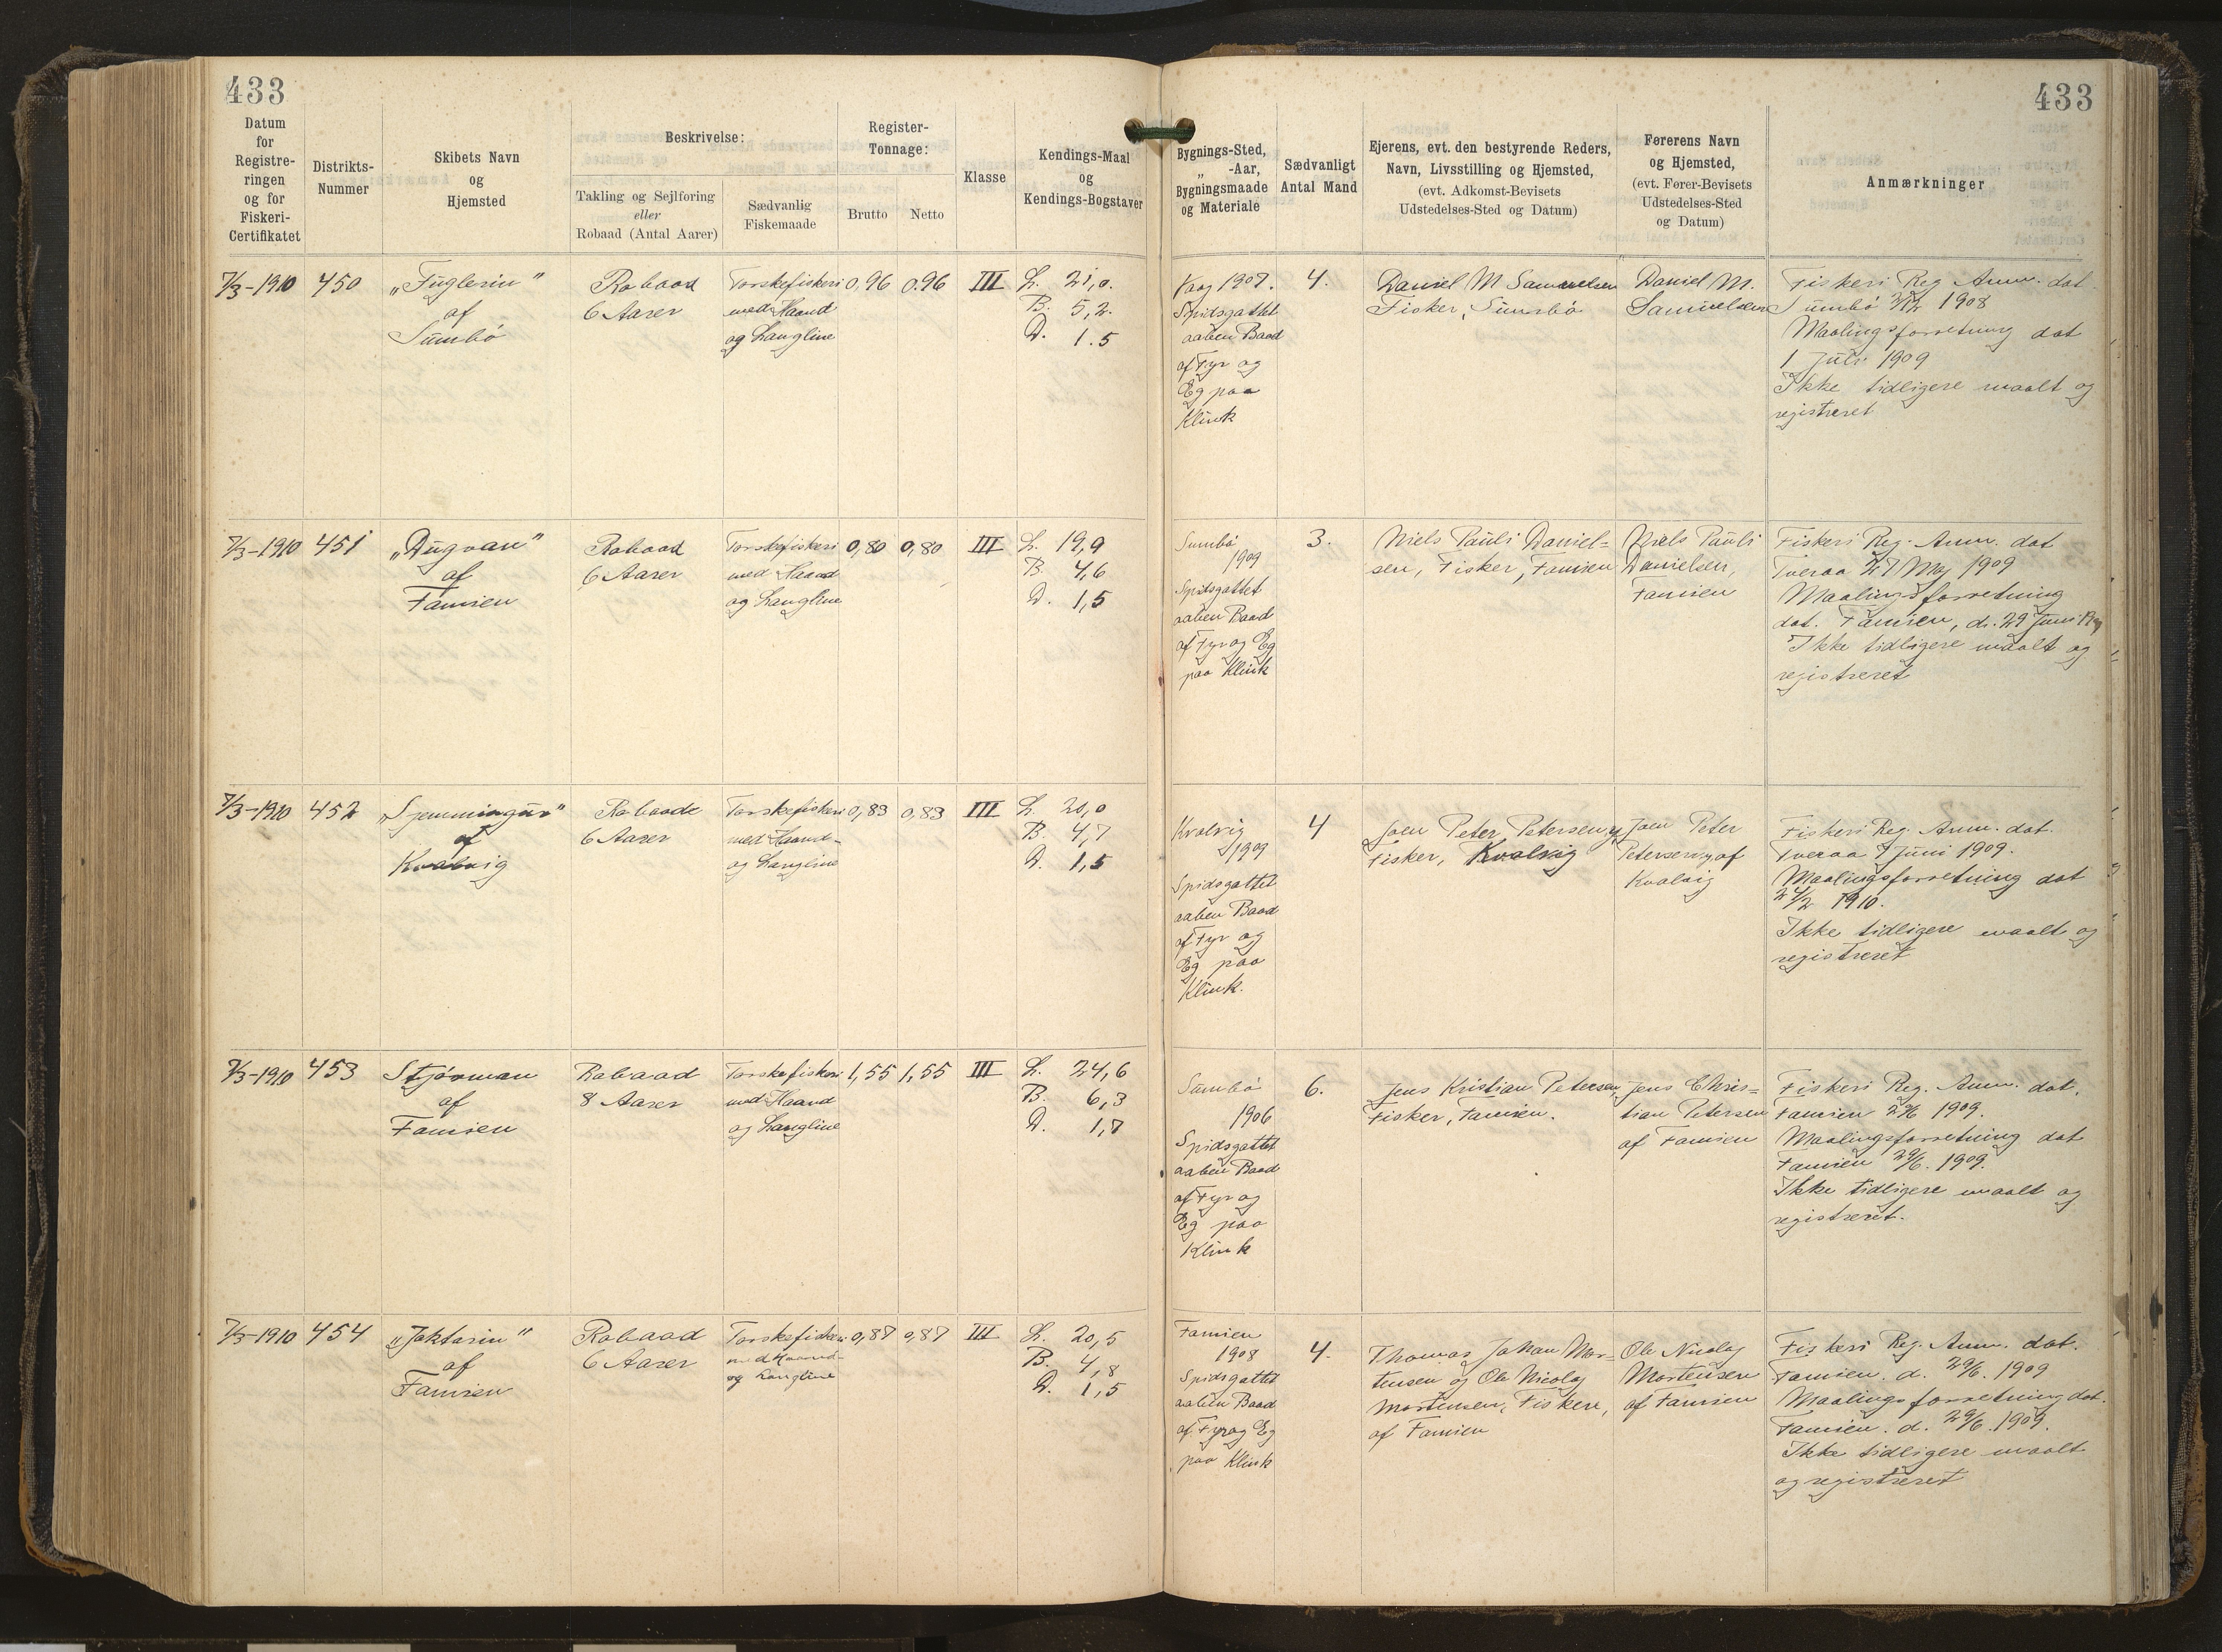 433
433
Datum
for
Registre-
ringen
og for
Fiskeri-
Certifikatet
Distrikts-
Nummer
Skibets Navn
og
Hjemsted
Beskrivelse:
Takling og Sejlføring
eller
Robaad (Antal Aarer)
Sædvanlig
Fiskemaade
Register-
Tonnage:
Brutto
Netto
Klasse
Kendings-Maal
og
Kendings-Bogstaver
Bygnings-Sted,
„ -Aar,
Bygningsmaade
og Materiale
Sædvanligt
Antal Mand
Ejerens, evt. den bestyrende Reders,
Navn, Livsstilling og Hjemsted,
(evt. Adkomst-Bevisets
Udstedelses-Sted og Datum)
Førerens Navn
og Hjemsted,
(evt. Fører-Bevisets
Udstedelses-Sted
og Datum)
Anmærkninger
7/3-1910
450
„Fuglerin"
af
Sumbö
Robaad
6 Aarer
Torskefiskeri
med Haand
og Langline
0,96
0.96
III
L. 21,0.
B. 5,2.
D. 1.5
Vaag 1907.
Spidsgattet
aaben Baad
af Fyr og
Eg paa
Klink
4.
Daniel M Samuelsen
Fisker, Sumbö
Daniel M.
Samuelsen
Fiskeri Reg Anm. dat
Sumbö 1908
Maalingsforretning dat
1 Juli 1909
Ikke tidligere maalt og
registreret
7/3-1910
451
„Dugvan"
af
Famien
Robaad
6 Aarer
Torskefiskeri
med Haand
og Langline
0,80
0,80
III
L. 19,9
B. 4,6
D. 1,5
Sumbö
1909
Spidsgattet
aaben Baad
af Fyr og Eg
paa Klink
3.
Niels Pauli Daniel=
sen, Fisker, Famien
Niels Pauli
Danielsen,
Famien
Fiskeri Reg. Anm. dat
Tveraa 27 Maj 1909
Maalingsforretning
dat. Famien, d. 29 Juni
Ikke tidligere maalt og
registreret
7/3-1910
452
„Sjemmingur"
af
Kvalvig
Robaade
6 Aarer
Torskefiskeri
med Haand-
og Langline
0,83
0,83
III
L. 20,0
B. 4,7
D. 1,5
Kvalvig
1909
Spidsgattet
aaben Baad
af Fyr og
Eg paa
Klink.
4
Joen Peter Petersen,
Fisker, Kvalvig
Joen Peter
Petersen af
Kvalvig
Fiskeri Reg. Anm. dat.
Tveraa 7 Juni 1909.
Maalingsforretning dat
24/2 1910.
Ikke tidligere maalt og
registreret
7/3-1910
453
Stjörman
af
Famien
Robaad
8 Aarer
Torskefiskeri
med Haand
og Langline
1,55
1,55
III
L. 24,6
B. 6,3
D. 1,7
Sumbö
1906
Spidsgattet
aaben Baad
af Fyr og
Eg paa
Klink
6.
Jens Kristian Petersen,
Fisker, Famien.
Jens Chris=
tian Petersen
af Famien
Fiskeri Reg. Anm. dat.
Famien 29/6 1909.
Maalingsforretning dat
Famien 29/6. 1909.
Ikke tidligere maalt og
registreret.
7/3-1910
454
„Jaktarin"
af
Famien
Robaad
6 Aarer
Torskefiskeri
med Haand-
og Langline
0,87
0,87
III
L. 20,5
B. 4,8
D. 1,5
Famien
1908
Spidsgattet
aaben Baad
af Fyr og Eg
paa Klink
4.
Thomas Johan Mor-
tensen og Ole Nicolaj
Mortensen, Fiskere,
af Famien
Ole Nicolaj
Mortensen
af Famien
Fiskeri Reg. Anm. dat.
Famien. d. 29/6. 1909
Maalingsforretning dat.
Famien. d. 29/6. 1909.
Ikke tidligere maalt
og registreret